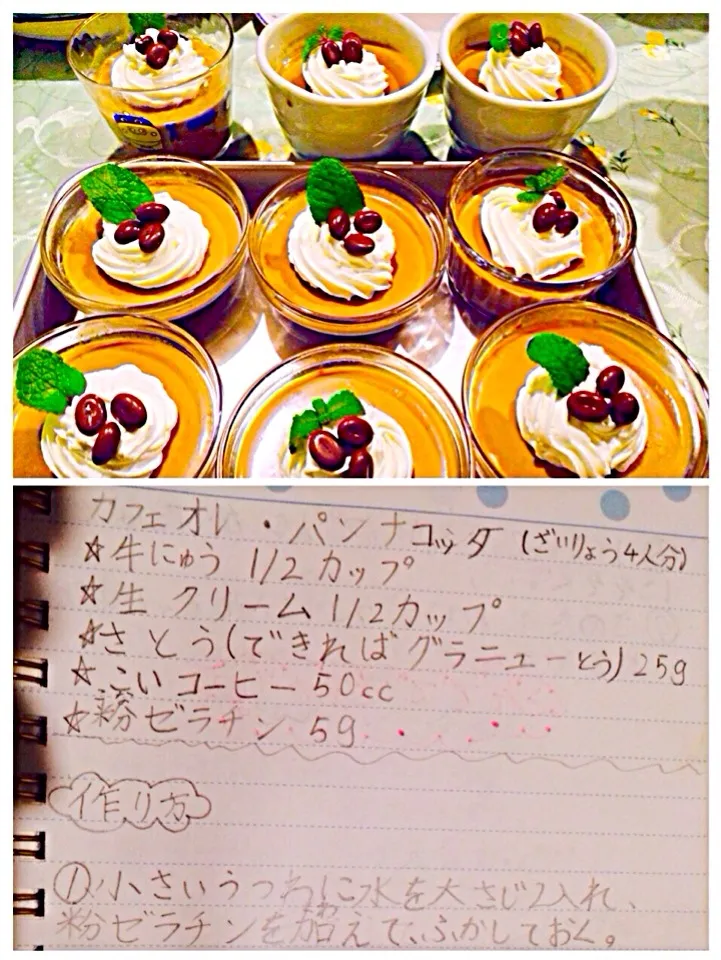 カフェオレ・パンナコッタ (ざいりょう4人分)
☆牛にゅう 1/2カップ
☆生クリーム 1/2カップ
☆さとう(できればグラニューとう) 25g
☆こいコーヒー 50cc
☆粉ゼラチン 5g
作り方
①小さいうつわに水を大さじ2入れ、
粉ゼラチンを加えて、ふかしておく。